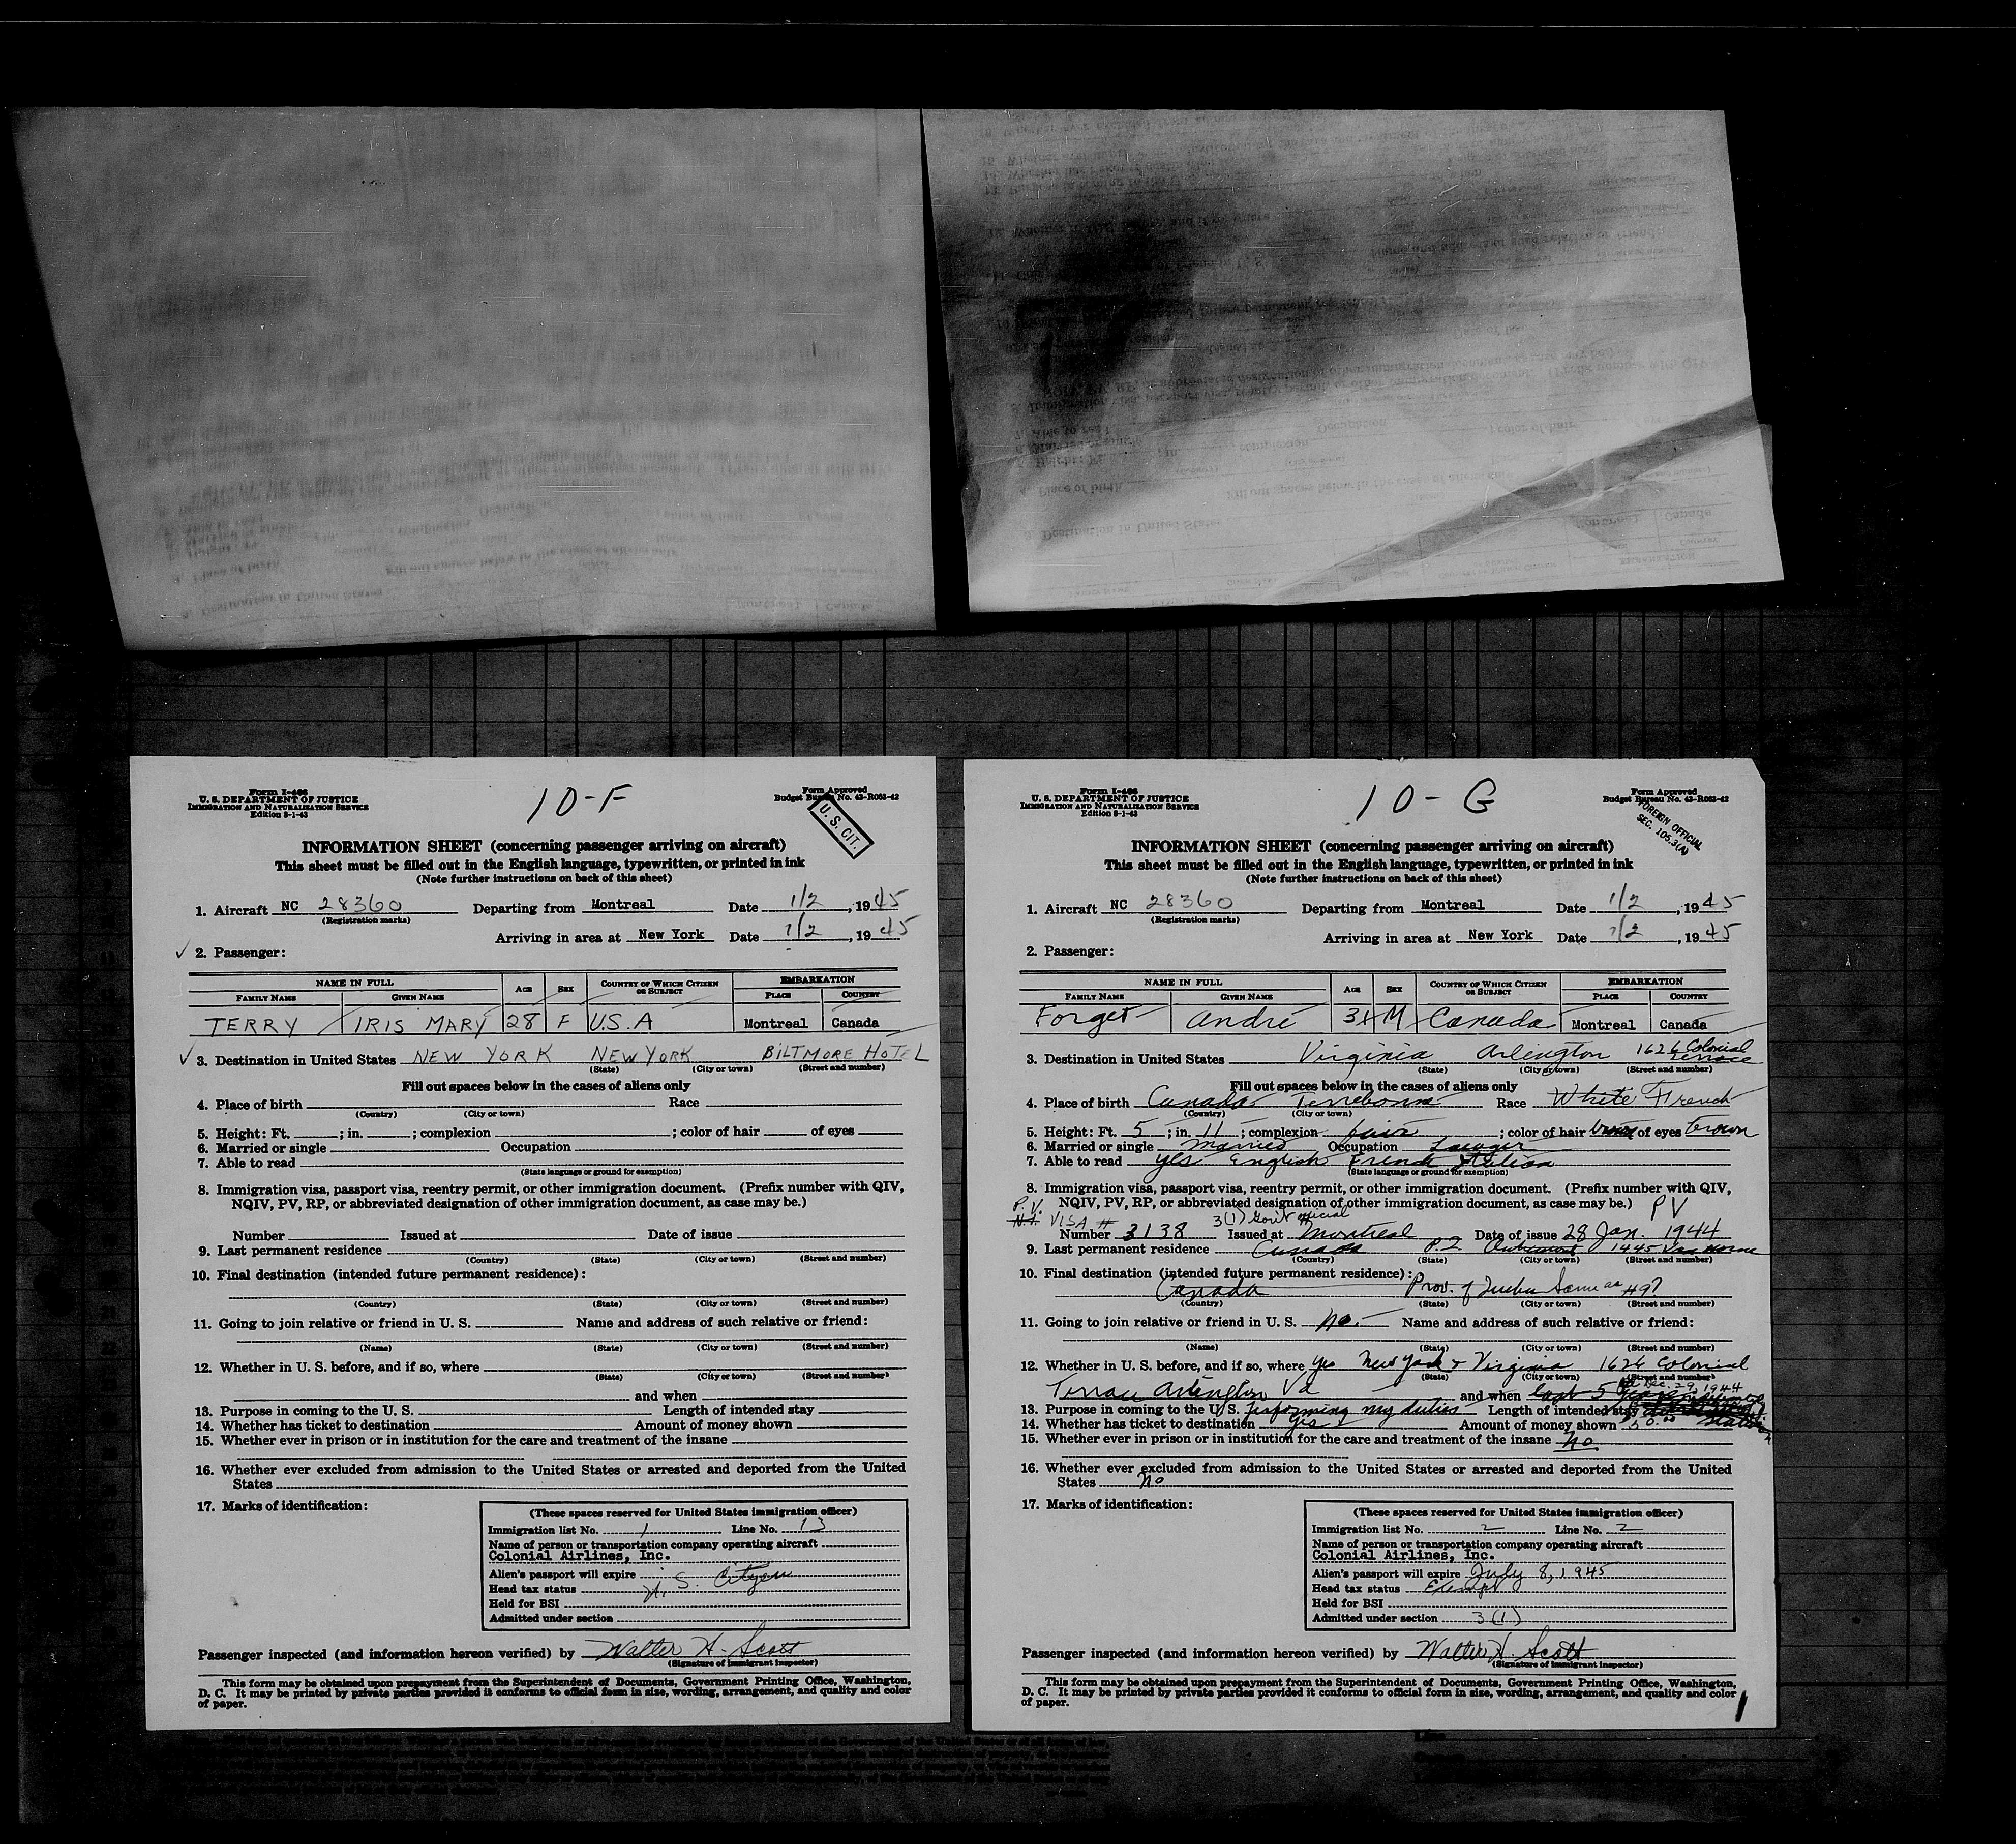 Form I-466
U. S. DEPARTMENT OF JUSTICE
IMMIGRATION AND NATURALIZATION SERVICE
Edition 8-1-43
10-F
Form Approved
Budget Bureau No. 43-R063-42
U. S. CIT.
INFORMATION SHEET (concerning passenger arriving on aircraft)
This sheet must be filled out in the English language, typewritten, or printed in ink
(Note further instructions on back of this sheet)
1. Aircraft NC 28360 Departing from Montreal Date 1/2, 1945
(Registration marks)
Arriving in area at New York Date 1/2, 1945
2. Passenger:
NAME IN FULL AGE SEX COUNTRY OF WHICH CITIZEN OR SUBJECT EMBARKATION
FAMILY NAME GIVEN NAME PLACE COUNTRY
TERRY IRIS MARY 28 F U.S.A Montreal Canada
3. Destination in United States NEW YORK NEW YORK BILTMORE HOTEL
(State) (City or town) (Street and number)
Fill out spaces below in the cases of aliens only
4. Place of birth Race
(Country) (City or town)
5. Height: Ft. ; in. ; complexion ; color of hair of eyes
6. Married or single Occupation
7. Able to read
(State language or ground for exemption)
8. Immigration visa, passport visa, reentry permit, or other immigration document. (Prefix number with QIV,
NQIV, PV, RP, or abbreviated designation of other immigration document, as case may be.)
Number Issued at Date of issue
9. Last permanent residence
(Country) (State) (City or town) (Street and number)
10. Final destination (intended future permanent residence):
(Country) (State) (City or town) (Street and number)
11. Going to join relative or friend in U. S. Name and address of such relative or friend:
(Name) (State) (City or town) (Street and number)
12. Whether in U. S. before, and if so, where
(State) (City or town) (Street and number)
and when
13. Purpose in coming to the U. S. Length of intended stay
14. Whether has ticket to destination Amount of money shown
15. Whether ever in prison or in institution for the care and treatment of the insane
16. Whether ever excluded from admission to the United States or arrested and deported from the United
States
17. Marks of identification:
(These spaces reserved for United States immigration officer)
Immigration list No. 1 Line No. 13
Name of person or transportation company operating aircraft
Colonial Airlines, Inc.
Alien's passport will expire
Head tax status U. S. Citizen
Held for BSI
Admitted under section
Passenger inspected (and information hereon verified) by Walter H. Scott
(Signature of immigrant inspector)
This form may be obtained upon prepayment from the Superintendent of Documents, Government Printing Office, Washington,
D. C. It may be printed by private parties provided it conforms to official form in size, wording, arrangement, and quality and color
of paper.
Form I-466
U. S. DEPARTMENT OF JUSTICE
IMMIGRATION AND NATURALIZATION SERVICE
Edition 8-1-43
10-G
Form Approved
Budget Bureau No. 43-R063-42
FOREIGN OFFICIAL
SEC. 105.3(A)
INFORMATION SHEET (concerning passenger arriving on aircraft)
This sheet must be filled out in the English language, typewritten, or printed in ink
(Note further instructions on back of this sheet)
1. Aircraft NC 28360 Departing from Montreal Date 1/2, 1945
(Registration marks)
Arriving in area at New York Date 1/2, 1945
2. Passenger:
NAME IN FULL AGE SEX COUNTRY OF WHICH CITIZEN OR SUBJECT EMBARKATION
FAMILY NAME GIVEN NAME PLACE COUNTRY
Forget André M Canada Montreal Canada
3. Destination in United States Virginia Arlington 1626 Colonial Terrace
(State) (City or town) (Street and number)
Fill out spaces below in the cases of aliens only
4. Place of birth Canada Terrebonne Race White French
(Country) (City or town)
5. Height: Ft. 5; in. 11; complexion fair; color of hair brown of eyes brown
6. Married or single married Occupation Lawyer
7. Able to read yes English French Italian
(State language or ground for exemption)
8. Immigration visa, passport visa, reentry permit, or other immigration document. (Prefix number with QIV,
NQIV, PV, RP, or abbreviated designation of other immigration document, as case may be.) PV
P.V. VISA # 3(1) Gov't official
Number 3138 Issued at Montreal Date of issue 28 Jan. 1944
9. Last permanent residence Canada P.Q. Outremont 1445 Van Horne
(Country) (State) (City or town) (Street and number)
10. Final destination (intended future permanent residence):
Canada Prov. of Quebec Same as #9
(Country) (State) (City or town) (Street and number)
11. Going to join relative or friend in U. S. No. Name and address of such relative or friend:
(Name) (State) (City or town) (Street and number)
12. Whether in U. S. before, and if so, where yes New York & Virginia 1626 Colonial
(State) (City or town) (Street and number)
Terrace Arlington Va and when last 5 Dec. 29, 1944
13. Purpose in coming to the U. S. performing my duties Length of intended stay
14. Whether has ticket to destination yes Amount of money shown 50.00
15. Whether ever in prison or in institution for the care and treatment of the insane No
16. Whether ever excluded from admission to the United States or arrested and deported from the United
States No
17. Marks of identification:
(These spaces reserved for United States immigration officer)
Immigration list No. 2 Line No. 2
Name of person or transportation company operating aircraft
Colonial Airlines, Inc.
Alien's passport will expire July 8, 1945
Head tax status Exempt
Held for BSI
Admitted under section 3(1)
Passenger inspected (and information hereon verified) by Walter H. Scott
(Signature of immigrant inspector)
This form may be obtained upon prepayment from the Superintendent of Documents, Government Printing Office, Washington,
D. C. It may be printed by private parties provided it conforms to official form in size, wording, arrangement, and quality and color
of paper.